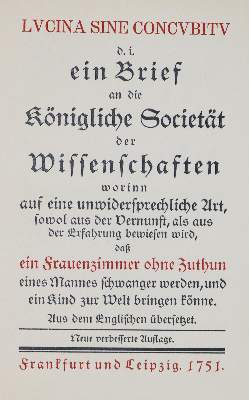 LVCINA SINE CONCVBITV
d. i.
ein Brief
an die
Königliche Societät
der
Wissenschaften
worinn
auf eine unwidersprechliche Art,
sowol aus der Vernunft, als aus
der Erfahrung bewiesen wird,
daß
ein Frauenzimmer ohne Zuthun
eines Mannes schwanger werden, und
ein Kind zur Welt bringen könne.
Aus dem Englischen übersetzet.
Neue verbesserte Auflage.
Franckfurt und Leipzig. 1751.